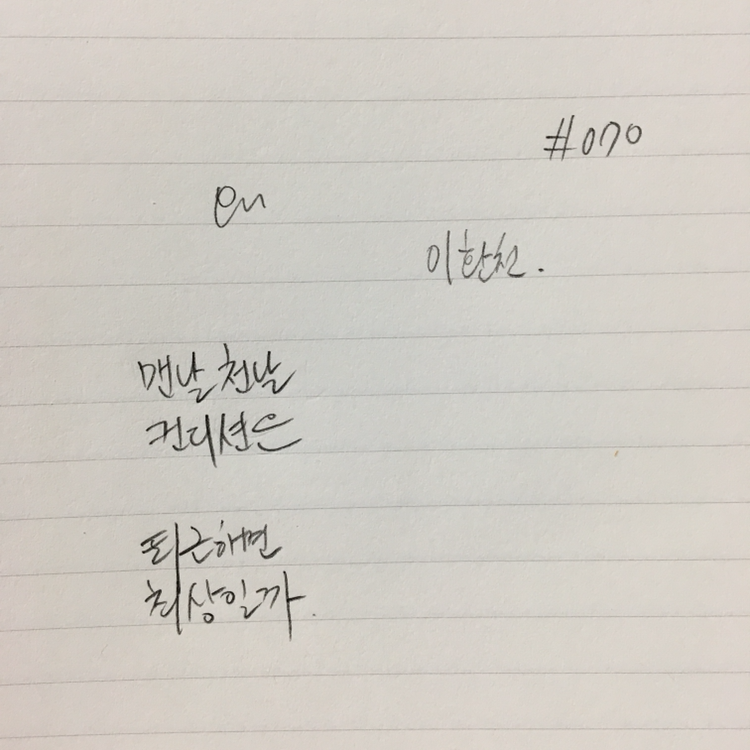 #070
이환천.
맨날 천날
컨디션은
퇴근해면
최상일까.